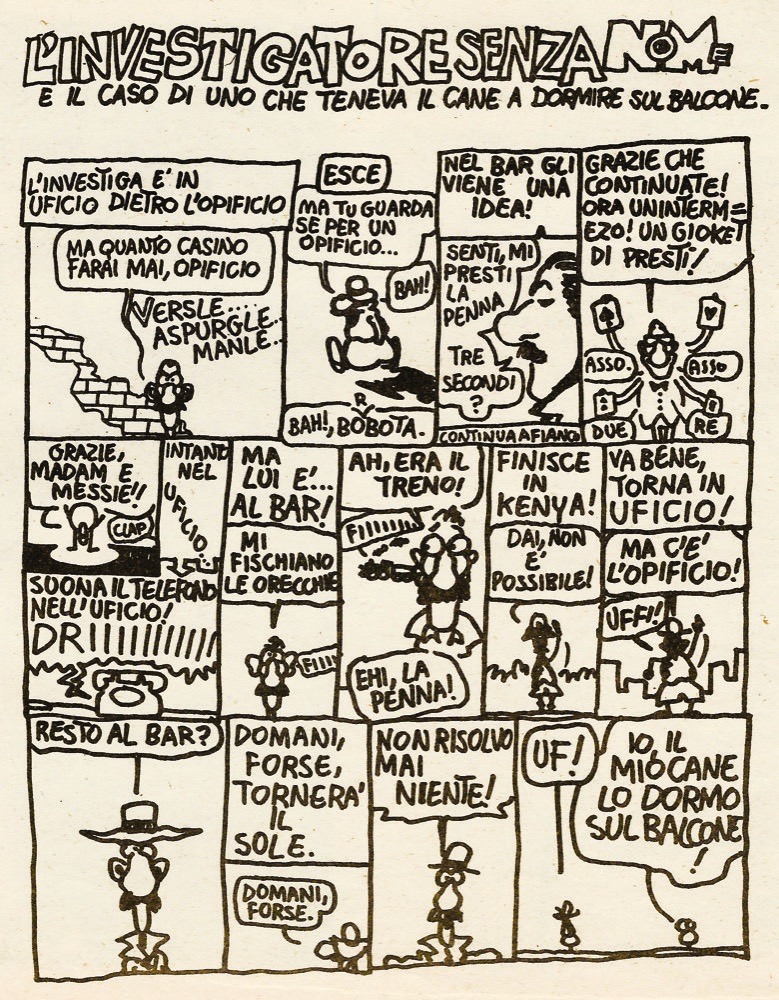 L'INVESTIGATORE SENZA NOME
E IL CASO DI UNO CHE TENEVA IL CANE A DORMIRE SUL BALCONE.
L'INVESTIGA E' IN
UFICIO DIETRO L'OPIFICIO
MA QUANTO CASINO
FARAI MAI, OPIFICIO
VERSLE....
ASPURGLE...
MANLE...
ESCE
MA TU GUARDA
SE PER UN
OPIFICIO...
BAH!
BAH!, BOBOTA.
R
NEL BAR GLI
VIENE UNA
IDEA!
SENTI, MI
PRESTI
LA
PENNA
TRE
SECONDI
?
CONTINUA A FIANCO
GRAZIE CHE
CONTINUATE!
ORA UNINTERM=
EZO! UN GIOKET
DI PRESTI!
ASSO.
ASSO
DUE
RE
GRAZIE,
MADAM E
MESSIE!!
CLAP
INTANTO
NEL
UFICIO..
SUONA IL TELEFONO
NELL'UFICIO!
DRIIIIIIIIII
MA
LUI E'...
AL BAR!
MI
FISCHIANO
LE ORECCHIE
FIIII
AH, ERA IL
TRENO!
FIIIIIII
EHI, LA
PENNA!
FINISCE
IN
KENYA!
DAI, NON
E'
POSSIBILE!
VA BENE,
TORNA IN
UFICIO!
MA C'E'
L'OPIFICIO!
UFFI!
RESTO AL BAR?
DOMANI,
FORSE,
TORNERA'
IL
SOLE.
DOMANI,
FORSE.
NON RISOLVO
MAI
NIENTE!
UF!
IO, IL
MIO CANE
LO DORMO
SUL BALCONE
!